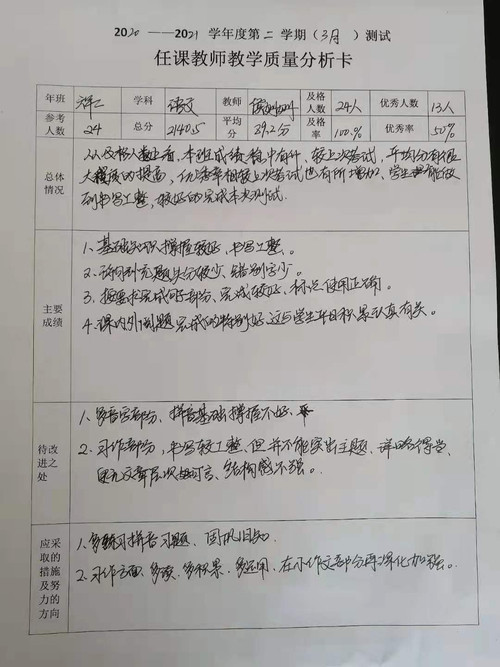 2020 —— 2021 学年度第二学期（3月 ）测试
任课教师教学质量分析卡
年班 二 学科 语文 教师 及格人数 24人 优秀人数 13人
参考人数 24 总分 2140.5 平均分 89.2分 及格率 100% 优秀率 50%
总体情况
从及格人数上看，本班成绩稳中有升，较上次考试，平均分有很
大幅度的提高，优秀率相较上次考试也有所增加。学生都能做
到书写工整，较好的完成本次测试.
主要成绩
1、基础知识掌握较好，书写工整。
2、词句补充题失分较少，错别字少。
3、按要求完成句子部分，完成较好，标点使用正确。
4、课内外问题完成的特别好，这与学生平日积累认真有关。
待改进之处
1、多音字部分，拼音基础掌握不好。
2、习作部分，书写较工整，但并不能突出主题，详略得当，
文章层次 ，结构感不强。
应采取的措施及努力的方向
1、多练习拼音习题，巩固旧知
2、习作方面，多读、多积累、多运用，在小作文部分再深化加强。